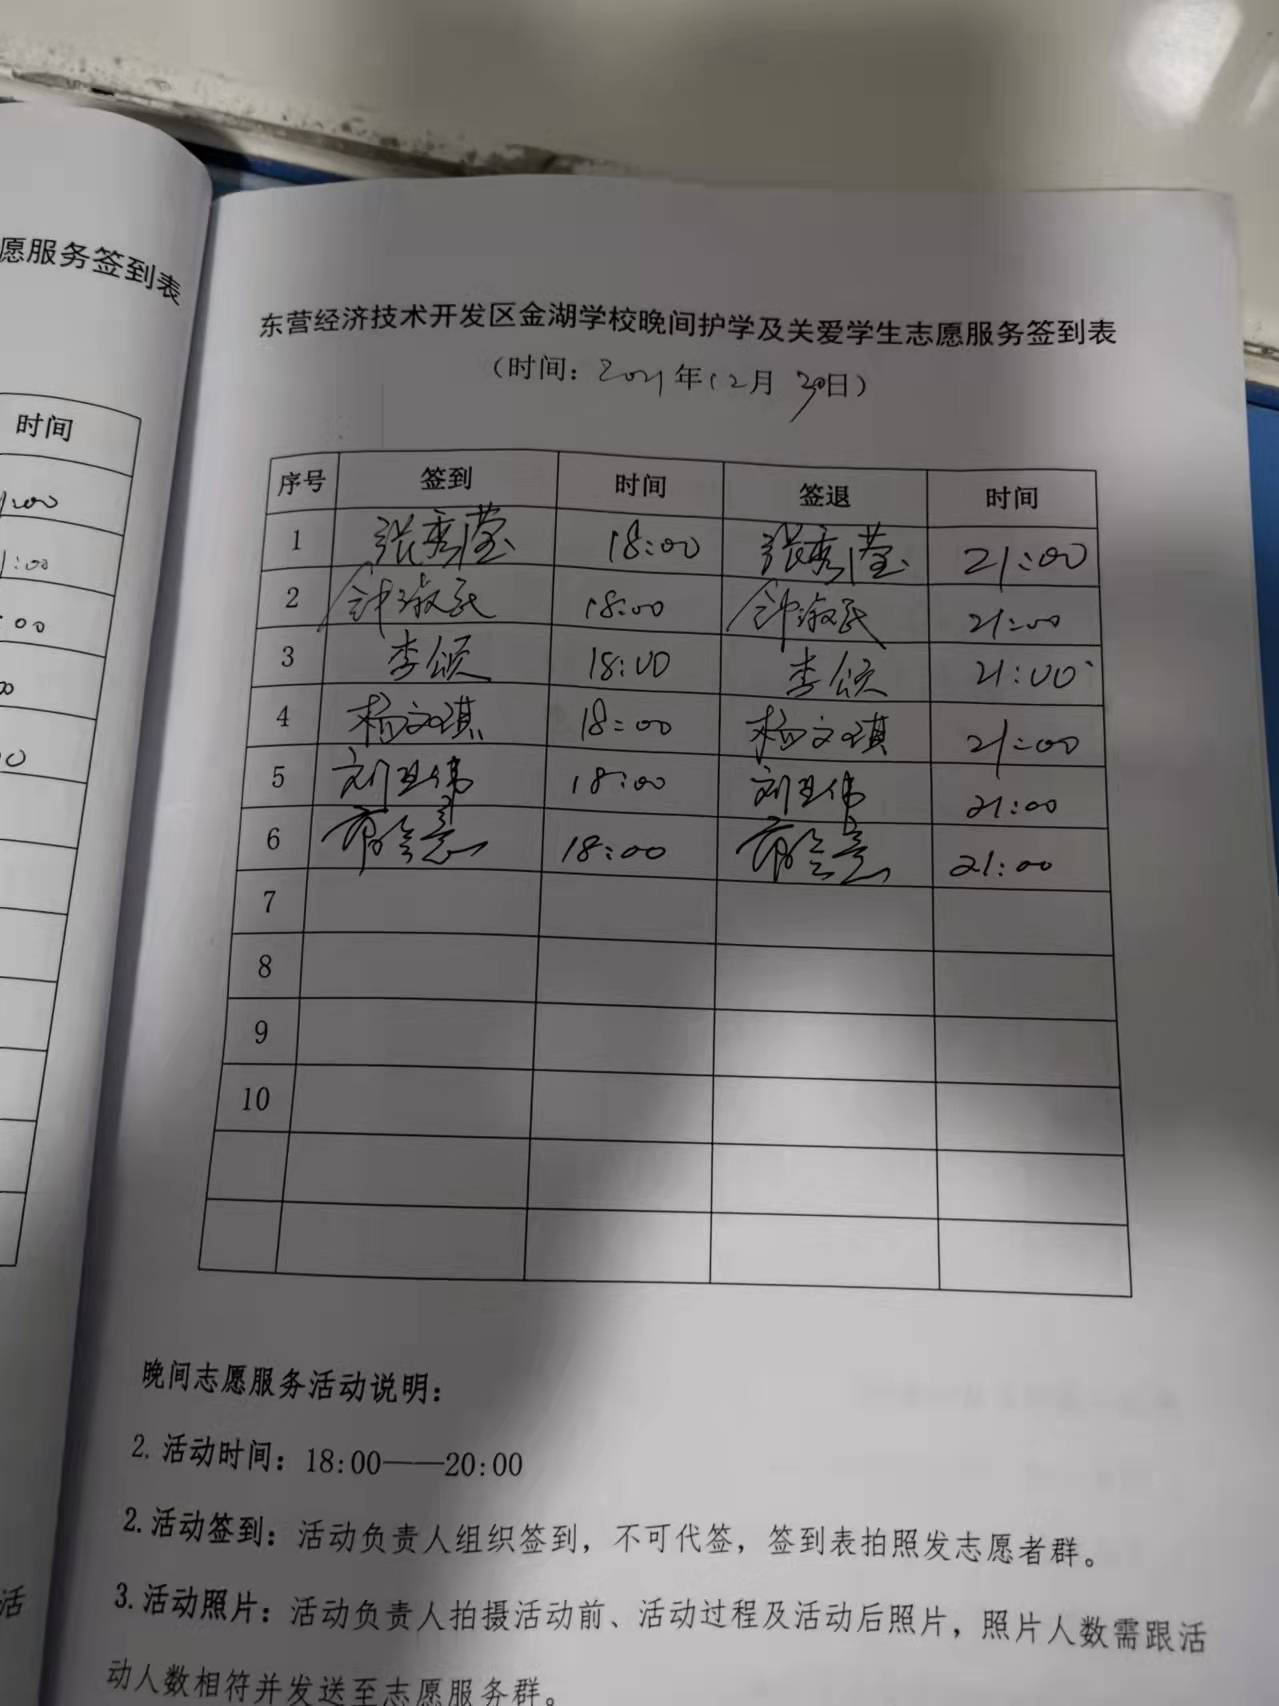 愿服务签到表
时间
1:00
1:00
:00
东营经济技术开发区金湖学校晚间护学及关爱学生志愿服务签到表
(时间: 2021年12月30日)
序号 签到 时间 签退 时间
1 张秀滢 18:00 张秀滢 21:00
2 钟淑民 18:00 钟淑民 21:00
3 李颂 18:00 李颂 21:00
4 杨文琪 18:00 杨文琪 21:00
5 刘卫伟 18:00 刘卫伟 21:00
6 18:00 21:00
7
8
9
10
晚间志愿服务活动说明:
2. 活动时间: 18:00——20:00
2. 活动签到: 活动负责人组织签到, 不可代签, 签到表拍照发志愿者群。
3. 活动照片: 活动负责人拍摄活动前、活动过程及活动后照片, 照片人数需跟活
动人数相符并发送至志愿服务群。
活